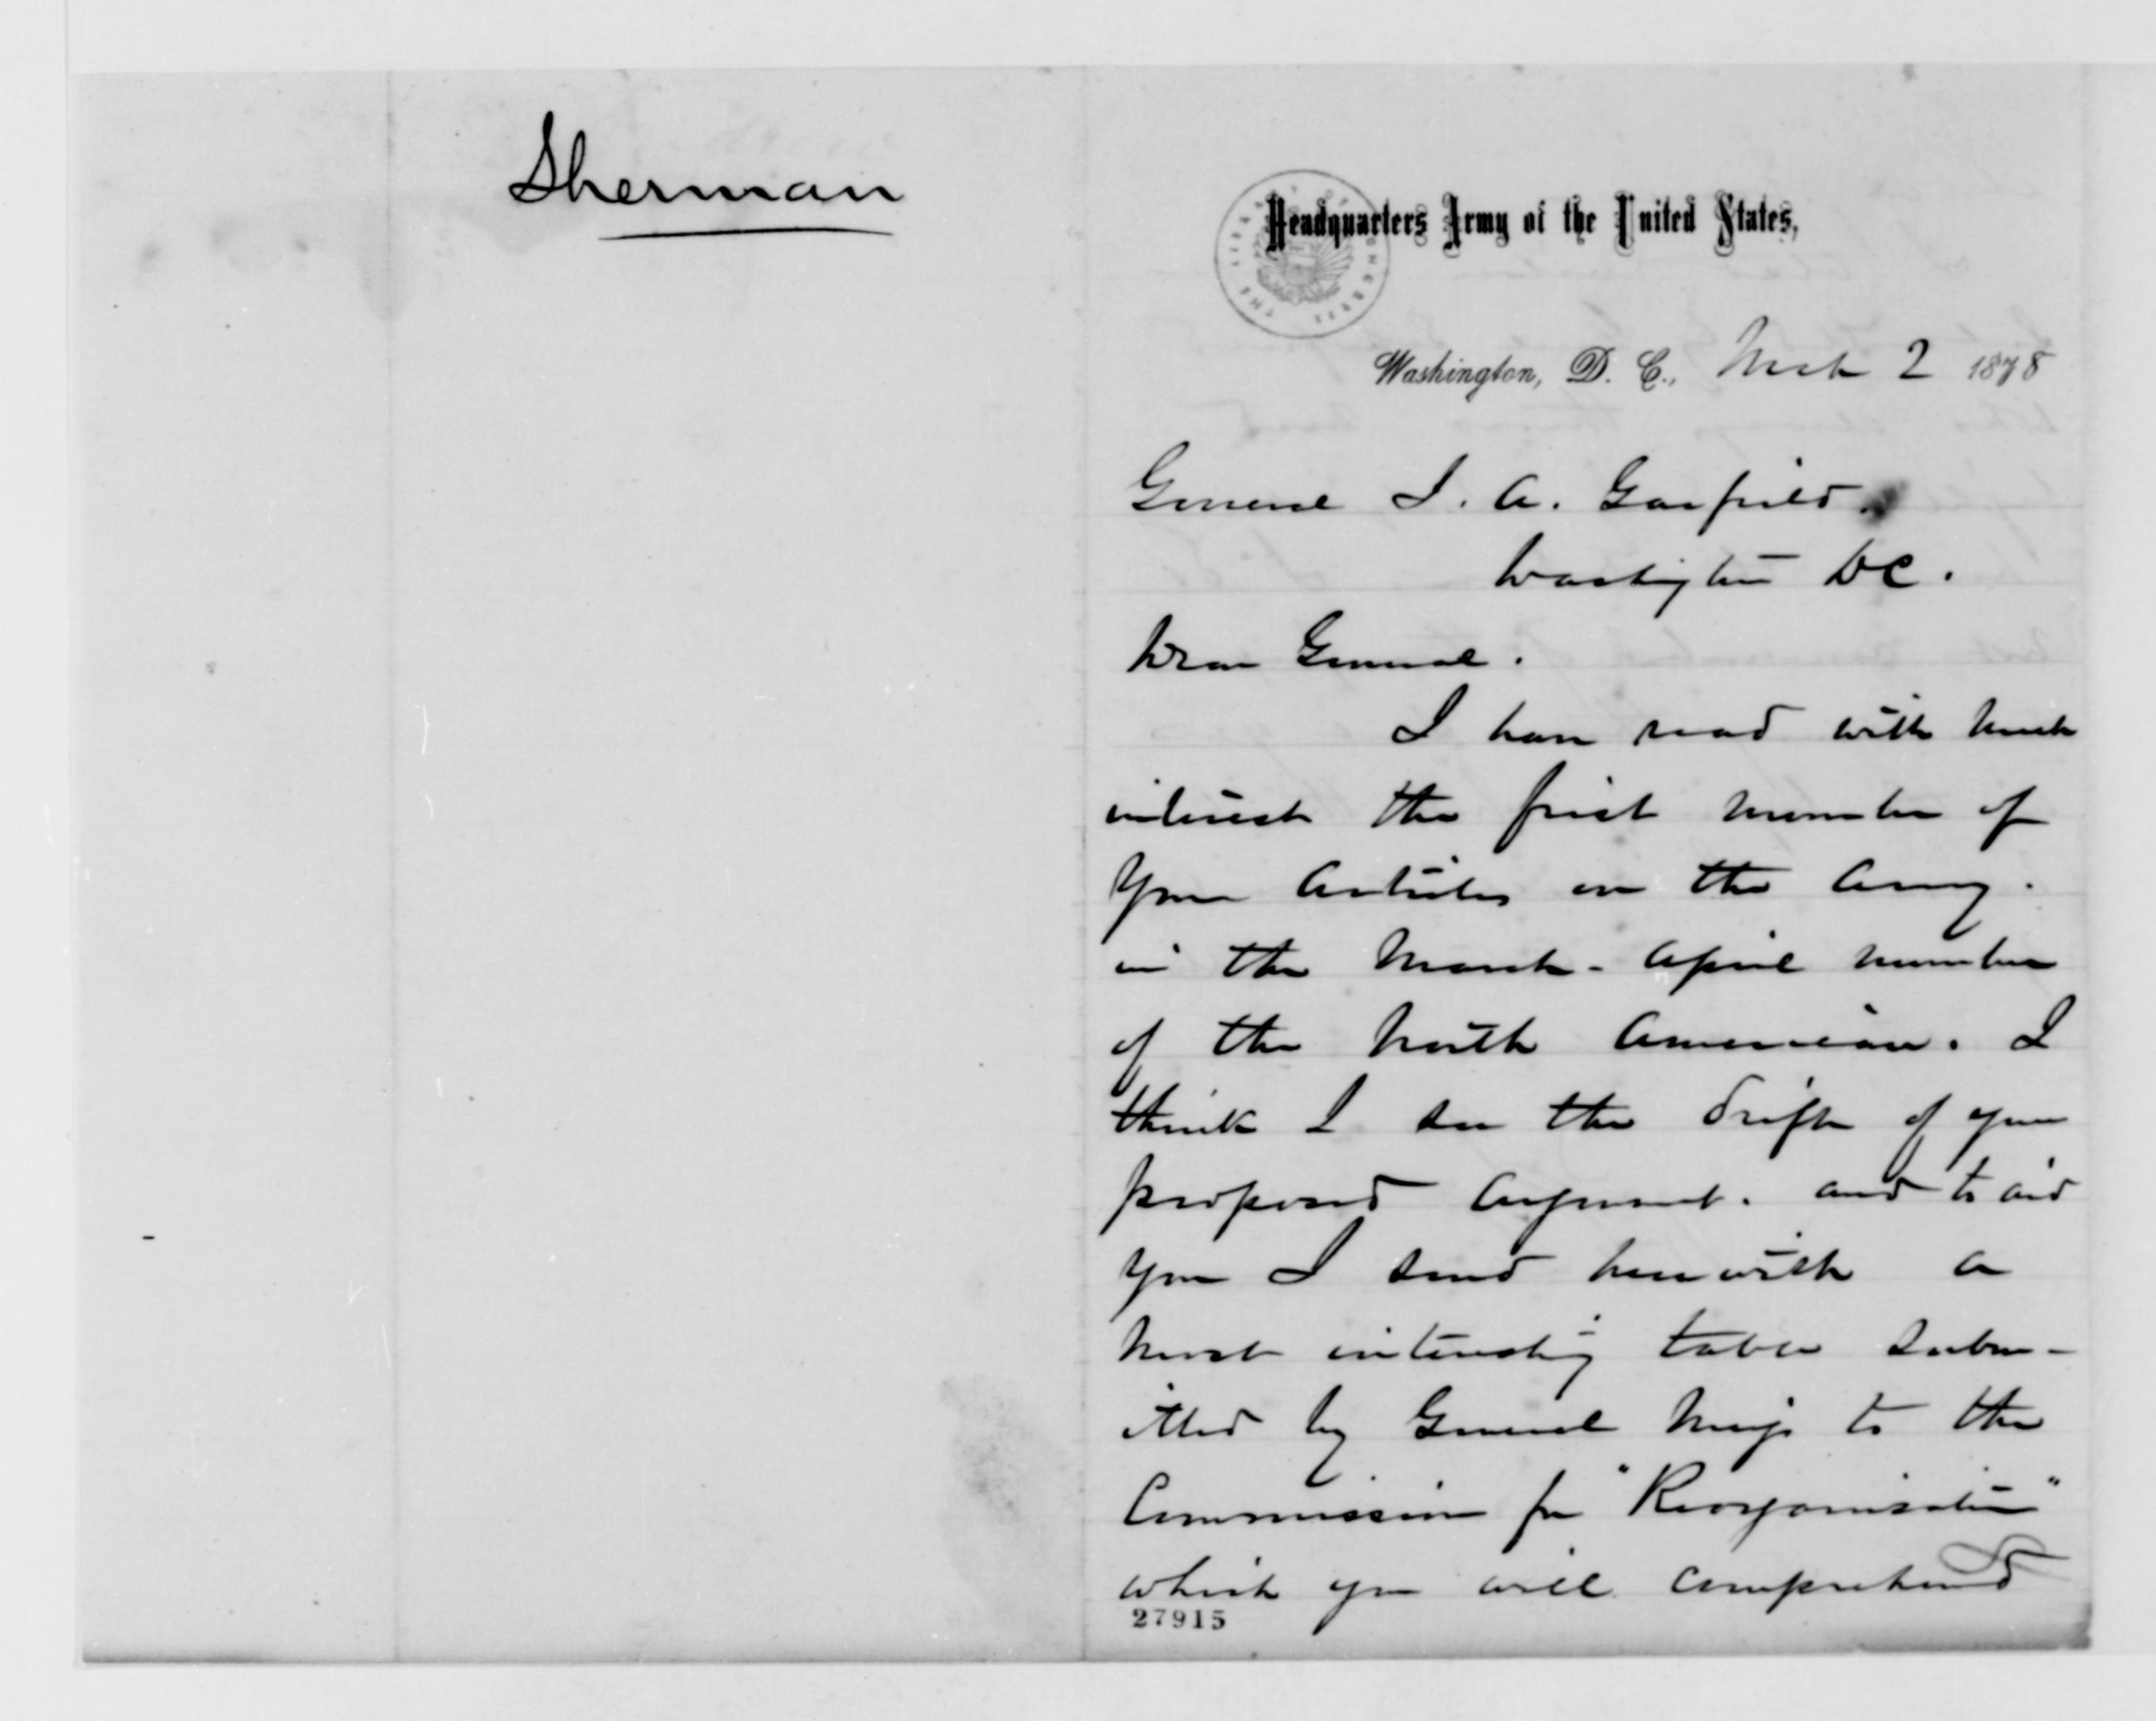 Sherman
Headquarters Army of the United States,
Washington, D. C., Mch 2 1878
General J. A. Garfield.
Washington DC.
Dear General.
I have read with much
interest the first number of
your Articles on the Army.
in the March-April number
of the North American. I
think I see the drift of your
proposed Argument. and to aid
you I send herewith a
most interesting table subm-
itted by General Meigs to the
Commission for "Reorganization"
which you will comprehend
27915